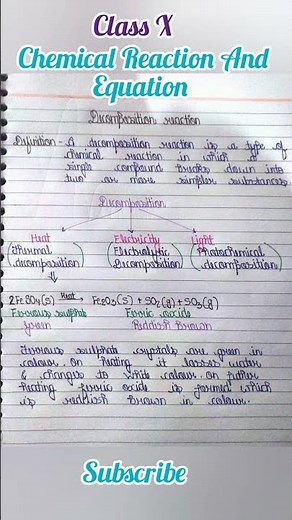 Class X
Chemical Reaction And
Equation
Decomposition reaction
Definition - A decomposition reaction is a type of
chemical reaction in which a
single compound breaks down into
two or more simpler substances
Decomposition
Heat Electricity Light
(Thermal decomposition) (Electrolytic Decomposition) (Photochemical decomposition)
2FeSO4(s) Heat→ Fe2O3(s) + SO2(g) + SO3(g)
Ferrous sulphate Ferric oxide
green Reddish Brown
Ferrous sulphate crystals are green in
colour. On heating it losses water
& changes to white colour. On further
heating ferric oxide is formed which
is reddish brown in colour.
Subscribe